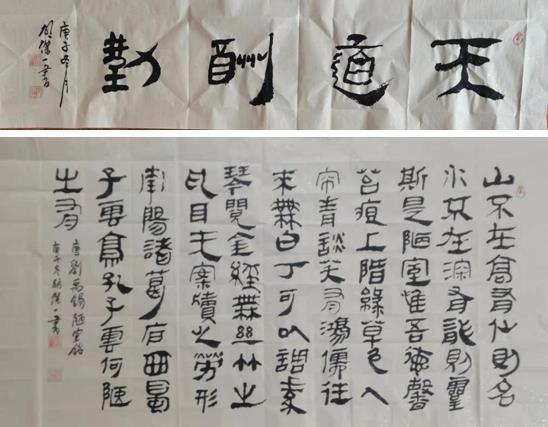 天道酬勤
庚子冬月
胡傑一書
山不在高有仙則名
水不在深有龍則靈
斯是陋室惟吾德馨
苔痕上階綠草色入
帘青談笑有鴻儒往
來無白丁可以調素
琴閱金經無絲竹之
亂耳无案牘之勞形
南陽諸葛廬西蜀
子雲亭孔子雲何陋
之有
唐劉禹錫陋室銘
庚子冬胡傑一書